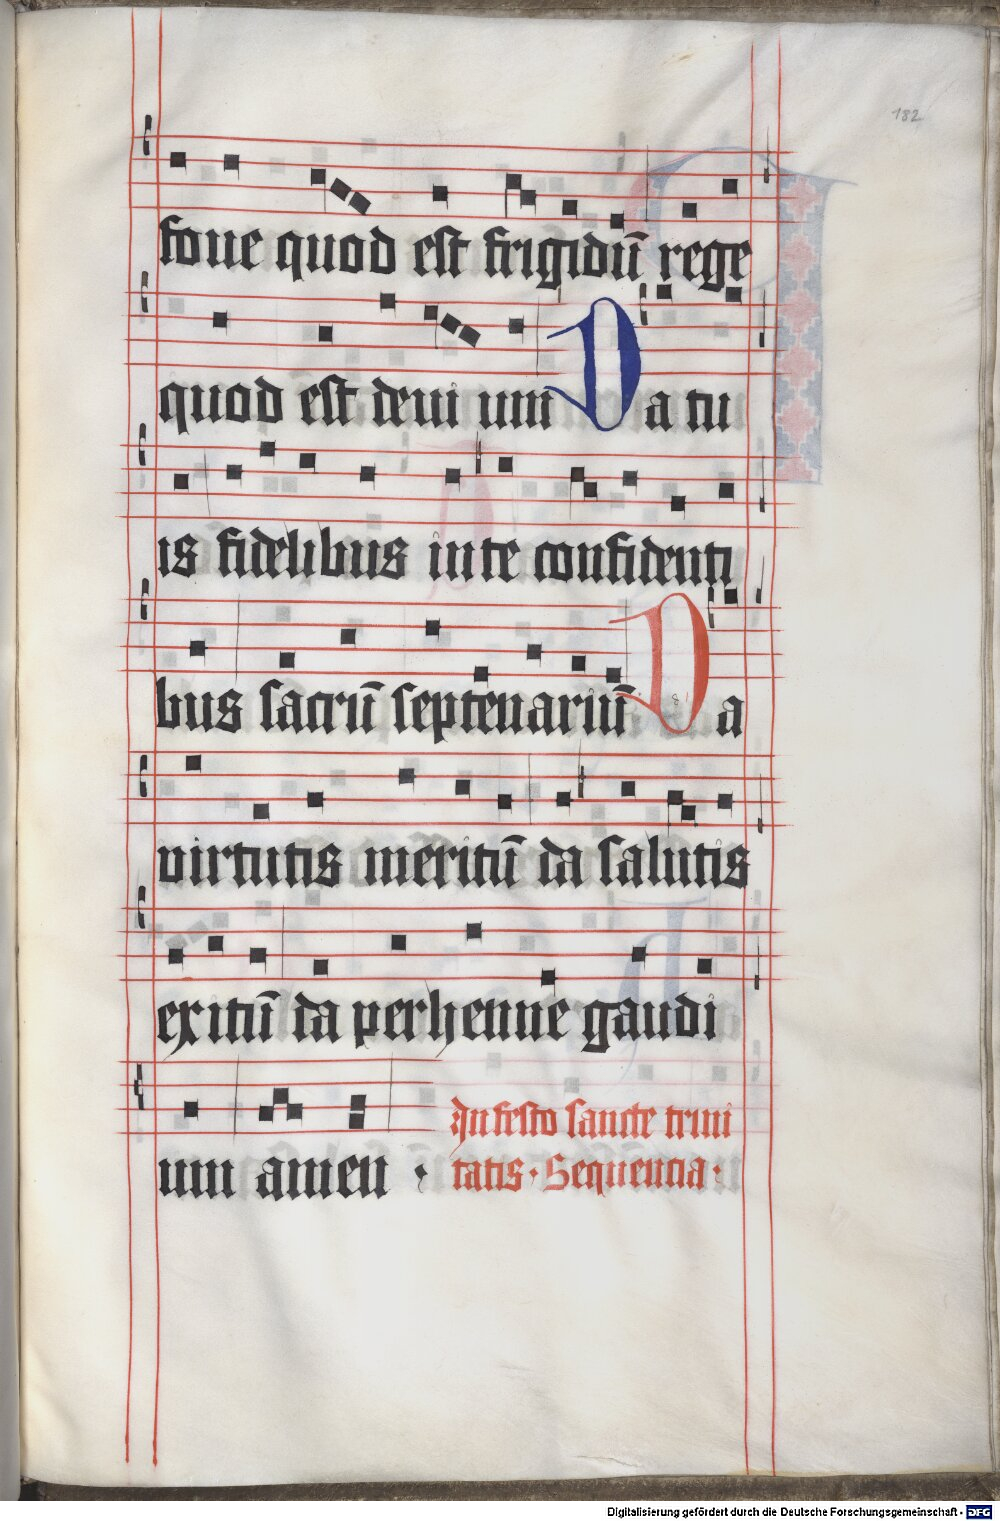 182
foue quod est frigidū rege
quod est deui um Da tu
is fidelibus in te confidenti
bus sacrū septenariū Da
virtutis meritū da salutis
exitū da perhenne gaudi
um amen ·
In festo sancte trini
tatis · Sequentia ·
Digitalisierung gefördert durch die Deutsche Forschungsgemeinschaft - DFG